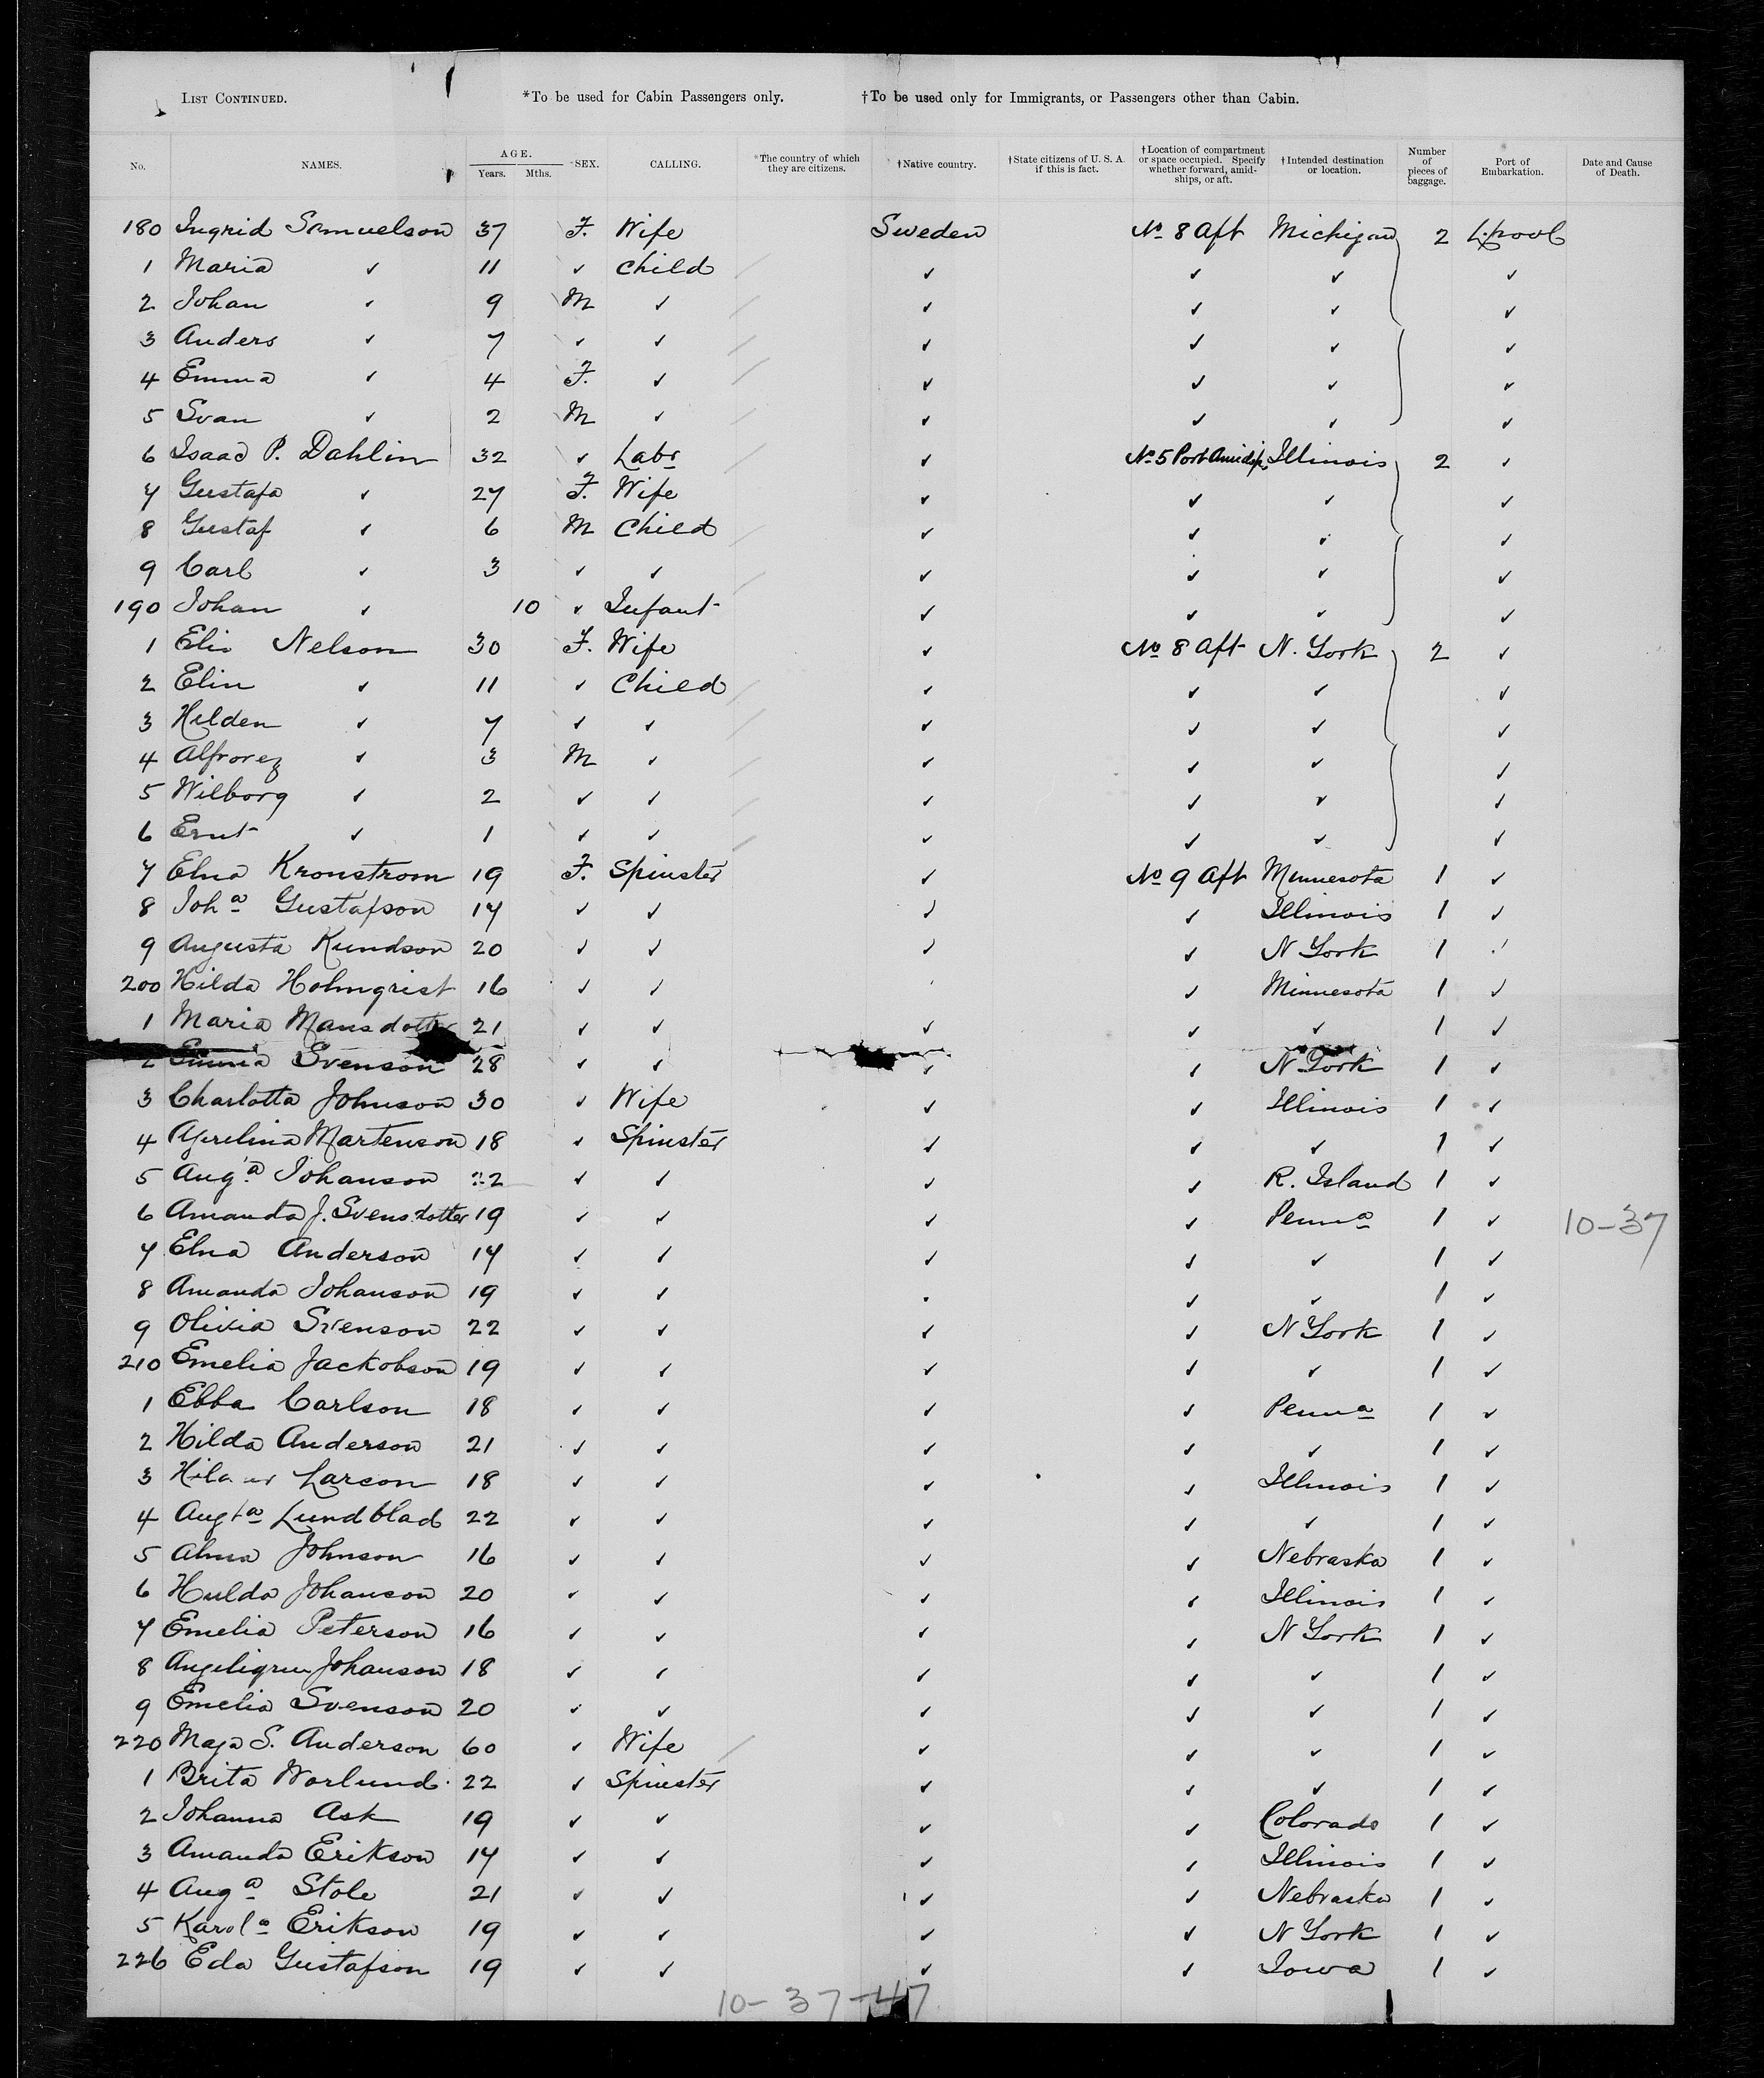 LIST CONTINUED. *To be used for Cabin Passengers only. †To be used only for Immigrants, or Passengers other than Cabin.
No. NAMES. AGE. Years. Mths. SEX. CALLING. *The country of which they are citizens. †Native country. †State citizens of U. S. A. if this is fact. †Location of compartment or space occupied. Specify whether forward, amidships, or aft. †Intended destination or location. Number of pieces of baggage. Port of Embarkation. Date and Cause of Death.
180 Ingrid Samuelson 37 F. Wife Sweden No 8 Aft Michigan 2 L.pool
1 Maria ✓ 11 ✓ Child ✓ ✓ ✓ ✓
2 Johan ✓ 9 M ✓ ✓ ✓ ✓ ✓
3 Anders ✓ 7 ✓ ✓ ✓ ✓ ✓ ✓
4 Emma ✓ 4 F. ✓ ✓ ✓ ✓ ✓
5 Svan ✓ 2 M ✓ ✓ ✓ ✓ ✓
6 Isaac P. Dahlin 32 ✓ Labr ✓ No 5 Port Amidsp. Illinois 2 ✓
7 Gustafa ✓ 27 F. Wife ✓ ✓ ✓ ✓
8 Gustaf ✓ 6 M Child ✓ ✓ ✓ ✓
9 Carl ✓ 3 ✓ ✓ ✓ ✓ ✓ ✓
190 Johan ✓ 10 ✓ Infant ✓ ✓ ✓ ✓
1 Nelson 30 F. Wife ✓ No 8 Aft N. York 2 ✓
2 Elin ✓ 11 ✓ Child ✓ ✓ ✓ ✓
3 Hilden ✓ 7 ✓ ✓ ✓ ✓ ✓ ✓
4 ✓ 3 M ✓ ✓ ✓ ✓ ✓
5 Wilborg ✓ 2 ✓ ✓ ✓ ✓ ✓ ✓
6 Ernt ✓ 1 ✓ ✓ ✓ ✓ ✓ ✓
7 Elna Kronstrom 19 F. Spinster ✓ No 9 Aft Minnesota 1 ✓
8 Joha Gustafson 17 ✓ ✓ ✓ ✓ Illinois 1 ✓
9 Augusta Kundson 20 ✓ ✓ ✓ ✓ N York 1 ✓
200 Hilda Holmqrist 16 ✓ ✓ ✓ Minnesota 1 ✓
1 Maria Mansdotter 21 ✓ ✓ ✓ ✓ ✓ 1 ✓
2 Emma Svenson 28 ✓ ✓ ✓ ✓ N York 1 ✓
3 Charlotta Johnson 30 ✓ Wife ✓ ✓ Illinois 1 ✓
4 Martenson 18 ✓ Spinster ✓ ✓ ✓ 1 ✓
5 Auga Johanson 22 ✓ ✓ ✓ ✓ R. Island 1 ✓
6 Amanda J. Svensdotter 19 ✓ ✓ ✓ ✓ Penna 1 ✓ 10-37
7 Elna Anderson 17 ✓ ✓ ✓ ✓ ✓ 1 ✓
8 Amanda Johanson 19 ✓ ✓ ✓ ✓ 1 ✓
9 Olivia Svenson 22 ✓ ✓ ✓ ✓ N York 1 ✓
210 Emelia Jackobson 19 ✓ ✓ ✓ ✓ ✓ 1 ✓
1 Ebba Carlson 18 ✓ ✓ ✓ ✓ Penna 1 ✓
2 Hilda Anderson 21 ✓ ✓ ✓ ✓ ✓ 1 ✓
3 Larson 18 ✓ ✓ ✓ ✓ Illinois 1 ✓
4 Augta Lundblad 22 ✓ ✓ ✓ ✓ ✓ 1 ✓
5 Alma Johnson 16 ✓ ✓ ✓ ✓ Nebraska 1 ✓
6 Hulda Johanson 20 ✓ ✓ ✓ ✓ Illinois 1 ✓
7 Emelia Peterson 16 ✓ ✓ ✓ ✓ N York 1 ✓
8 Johanson 18 ✓ ✓ ✓ ✓ ✓ 1 ✓
9 Emelia Svenson 20 ✓ ✓ ✓ ✓ ✓ 1 ✓
220 Maja S. Anderson 60 ✓ Wife ✓ ✓ ✓ 1 ✓
1 Brita Norlund 22 ✓ Spinster ✓ ✓ ✓ 1 ✓
2 Johanna Ask 19 ✓ ✓ ✓ ✓ Colorado 1 ✓
3 Amanda Erikson 17 ✓ ✓ ✓ ✓ Illinois 1 ✓
4 Auga Stole 21 ✓ ✓ ✓ ✓ Nebraska 1 ✓
5 Karola Erikson 19 ✓ ✓ ✓ ✓ N York 1 ✓
226 Eda Gustafson 19 ✓ ✓ ✓ ✓ Iowa 1 ✓
10-37-47